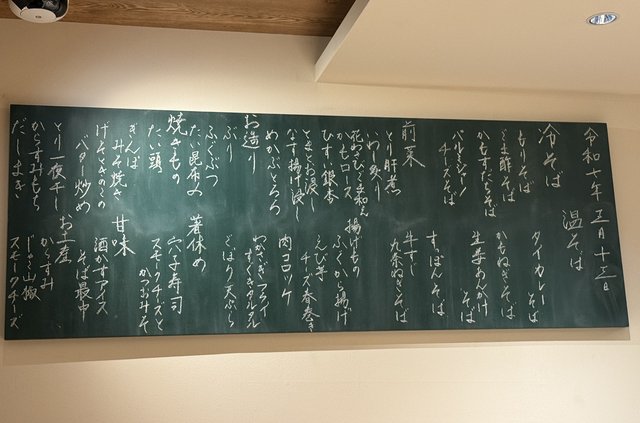 令和七年 三月十三日
冷そば
もりそば
ごま酢そば
かもすだちそば
パルミジャーノ
チーズそば
温そば
タイカレーそば
かもねぎそば
生姜あんかけそば
すっぽんそば
牛すじ
九条ねぎそば
前菜
とり肝煮
いわし
かもロース
ひすい銀杏
とまとお浸し
なす揚げ浸し
めかぶとろろ
お造り
ぶり
ふぐぶつ
たい昆布〆
焼きもの
たい頭
ぎんなん
みそ焼き
バター炒め
とり一夜干し
からすみもち
だしまき
揚げもの
ふぐから揚げ
えび芋
チーズ春巻き
肉コロッケ
わかさぎフライ
すぐきタルタル
ごぼう天ぷら
箸休め
穴子寿司
スモークチーズと
かつおみそ
甘味
酒かすアイス
そば最中
お土産
からすみ
じゃこ山椒
スモークチーズ